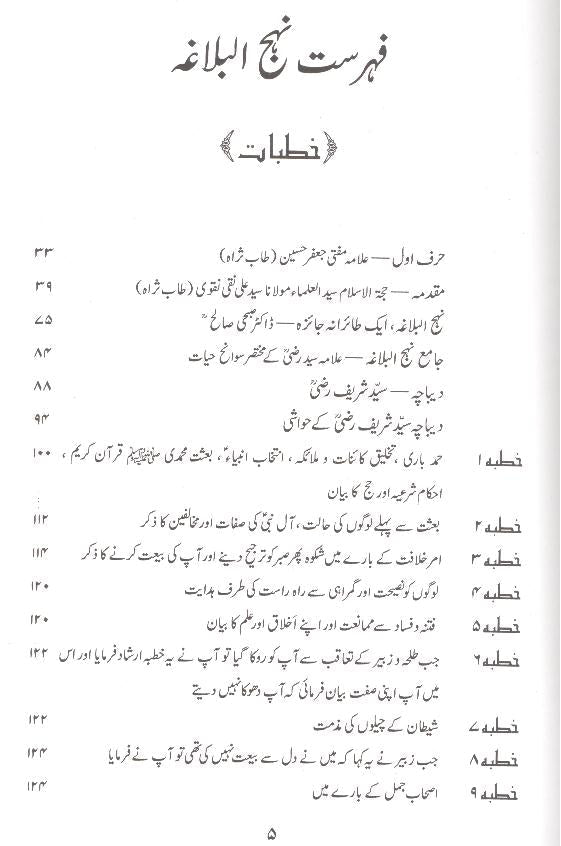 فہرست نہج البلاغہ
﴿خطبات﴾
حرف اول — علامہ مفتی جعفر حسین (طاب ثراہ) ۳۳
مقدمہ — حجۃ الاسلام سید العلماء مولانا سید علی نقی نقوی (طاب ثراہ) ۳۹
نہج البلاغہ، ایک طائرانہ جائزہ — ڈاکٹر صبحی صالحؒ ۷۵
جامع نہج البلاغہ — علامہ سید رضیؒ کے مختصر سوانح حیات ۸۴
دیباچہ — سیّد شریف رضیؒ ۸۸
دیباچہ سیّد شریف رضیؒ کے حواشی ۹۴
خطبہ ۱ حمد باری، تخلیق کائنات و ملائکہ، انتخاب انبیاءؑ، بعثت محمدی ﷺ قرآن کریم، ۱۰۰
احکام شرعیہ اور حج کا بیان
خطبہ ۲ بعثت سے پہلے لوگوں کی حالت، آل نبیؐ کی صفات اور مخالفین کا ذکر ۱۱۲
خطبہ ۳ امر خلافت کے بارے میں شکوہ پھر صبر کو ترجیح دینے اور آپ کی بیعت کرنے کا ذکر ۱۱۴
خطبہ ۴ لوگوں کو نصیحت اور گمراہی سے راہ راست کی طرف ہدایت ۱۲۰
خطبہ ۵ فتنہ و فساد سے ممانعت اور اپنے اَخلاق اور علم کا بیان ۱۲۰
خطبہ ۶ جب طلحہ و زبیر کے تعاقب سے آپ کو روکا گیا تو آپ نے یہ خطبہ ارشاد فرمایا اور اس ۱۲۲
میں آپ اپنی صفت بیان فرمائی کہ آپ دھوکا نہیں دیتے
خطبہ ۷ شیطان کے چیلوں کی مذمت ۱۲۲
خطبہ ۸ جب زبیر نے یہ کہا کہ میں نے دل سے بیعت نہیں کی تھی تو آپ نے فرمایا ۱۲۴
خطبہ ۹ اصحاب جمل کے بارے میں ۱۲۴
۵